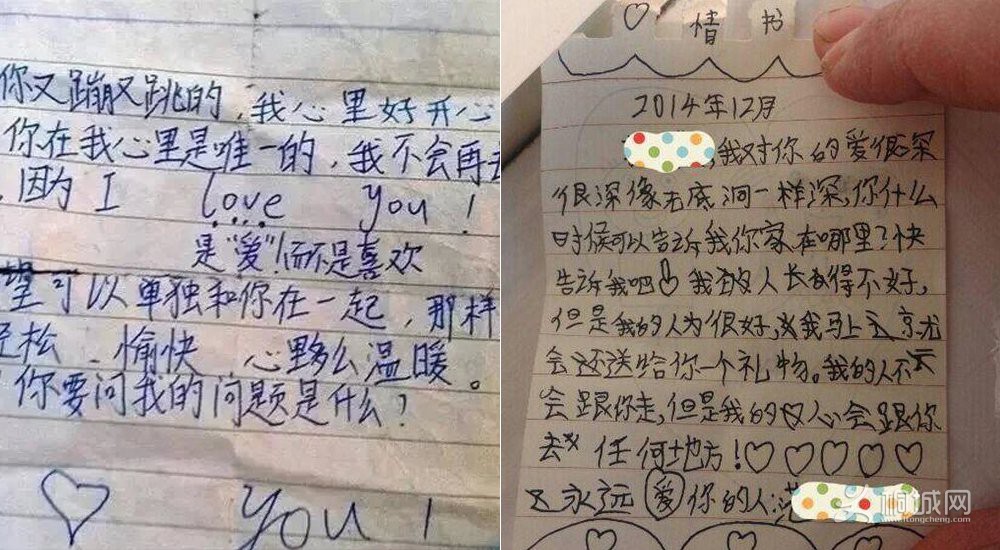 你又蹦又跳的，我心里好开心
你在我心里是唯一的，我不会再去
因为 I love you！
是"爱"！而不是喜欢
望可以单独和你在一起，那样
轻松、愉快 心里多么温暖。
你要问我的问题是什么？
♡ you！
♡ 情书
2014年12月
，我对你的爱很深
很深像无底洞一样深，你什么
时候可以告诉我你家在哪里？快
告诉我吧 我人长得不好，
但是我的人为很好，我马上
会还送给你一个礼物。我的人不
会跟你走，但是我的心会跟你
去任何地方！♡♡♡♡♡
永远爱你的人：
桐城网
itongcheng.com